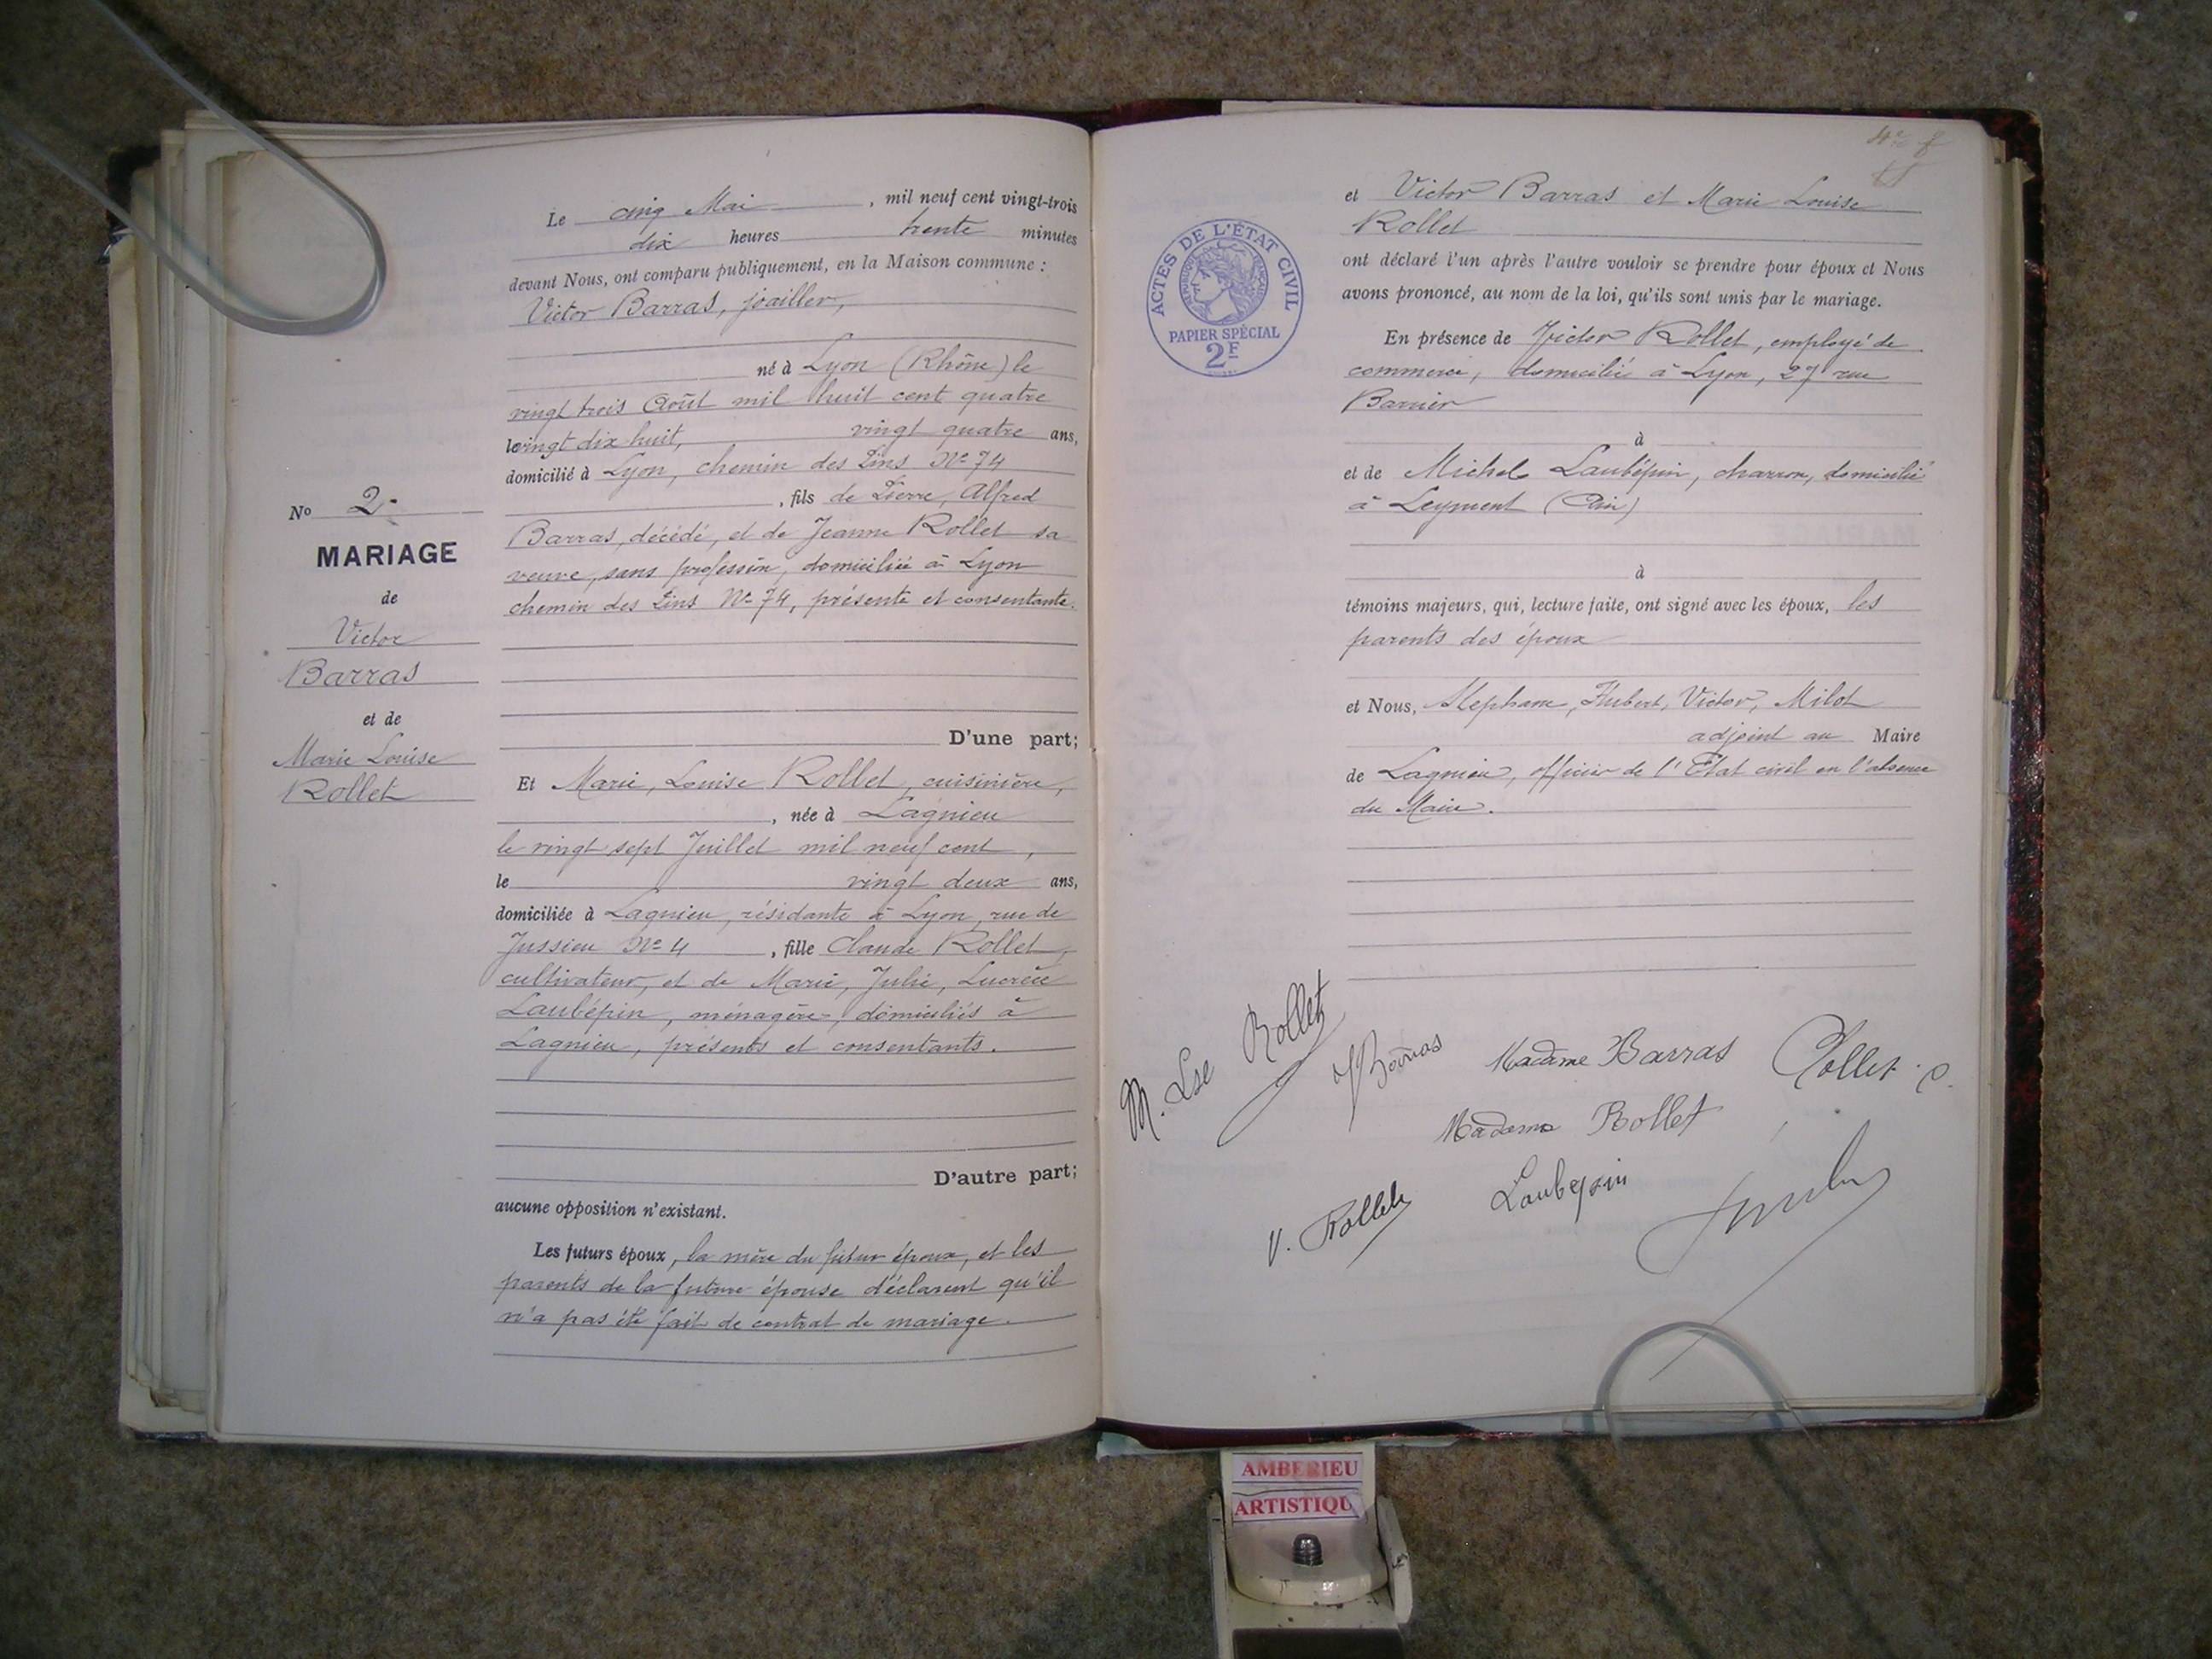 Le cinq Mai, mil neuf cent vingt-trois
dix heures trente minutes
devant Nous, ont comparu publiquement, en la Maison commune :
Victor Barras, joailler,
né à Lyon (Rhône) le
vingt trois Août mil huit cent quatre
le vingt dix huit, vingt quatre ans,
domicilié à Lyon, chemin des Pins Nº 74
, fils de Pierre, Alfred
Barras, décédé, et de Jeanne Rollet sa
veuve, sans profession, domiciliée à Lyon
chemin des Pins Nº 74, présente et consentante.
D'une part;
No 2
MARIAGE
de
Victor
Barras
et de
Marie Louise
Rollet
Et Marie, Louise Rollet, cuisinière,
, née à Lagnieu
le vingt sept Juillet mil neuf cent,
le vingt deux ans,
domiciliée à Lagnieu, résidante à Lyon, rue de
Jussieu Nº 4, fille Claude Rollet,
cultivateur, et de Marie, Julie, Lucrèce
Laubépin, ménagère, domiciliés à
Lagnieu, présents et consentants.
D'autre part;
aucune opposition n'existant.
Les futurs époux, la mère du futur époux, et les
parents de la future épouse déclarent qu'il
n'a pas été fait de contrat de mariage.
et Victor Barras et Marie Louise
Rollet
ont déclaré l'un après l'autre vouloir se prendre pour époux et Nous
avons prononcé, au nom de la loi, qu'ils sont unis par le mariage.
En présence de Victor Rollet, employé de
commerce, domicilié à Lyon, 27 rue
Barrier
à
et de Michel Laubépin, charron, domicilié
à Leyment (Ain)
à
témoins majeurs, qui, lecture faite, ont signé avec les époux, les
parents des époux
et Nous, Stephane, Hubert, Victor, Milot
adjoint au Maire
de Lagnieu, officier de l'Etat civil en l'absence
du Maire.
ACTES DE L'ÉTAT CIVIL
RÉPUBLIQUE FRANÇAISE
PAPIER SPÉCIAL
2F
M. Lse Rollet
V Barras
Madame Barras
Rollet C.
Madame Rollet
V. Rollet
Laubepin
AMBERIEU
ARTISTIQU